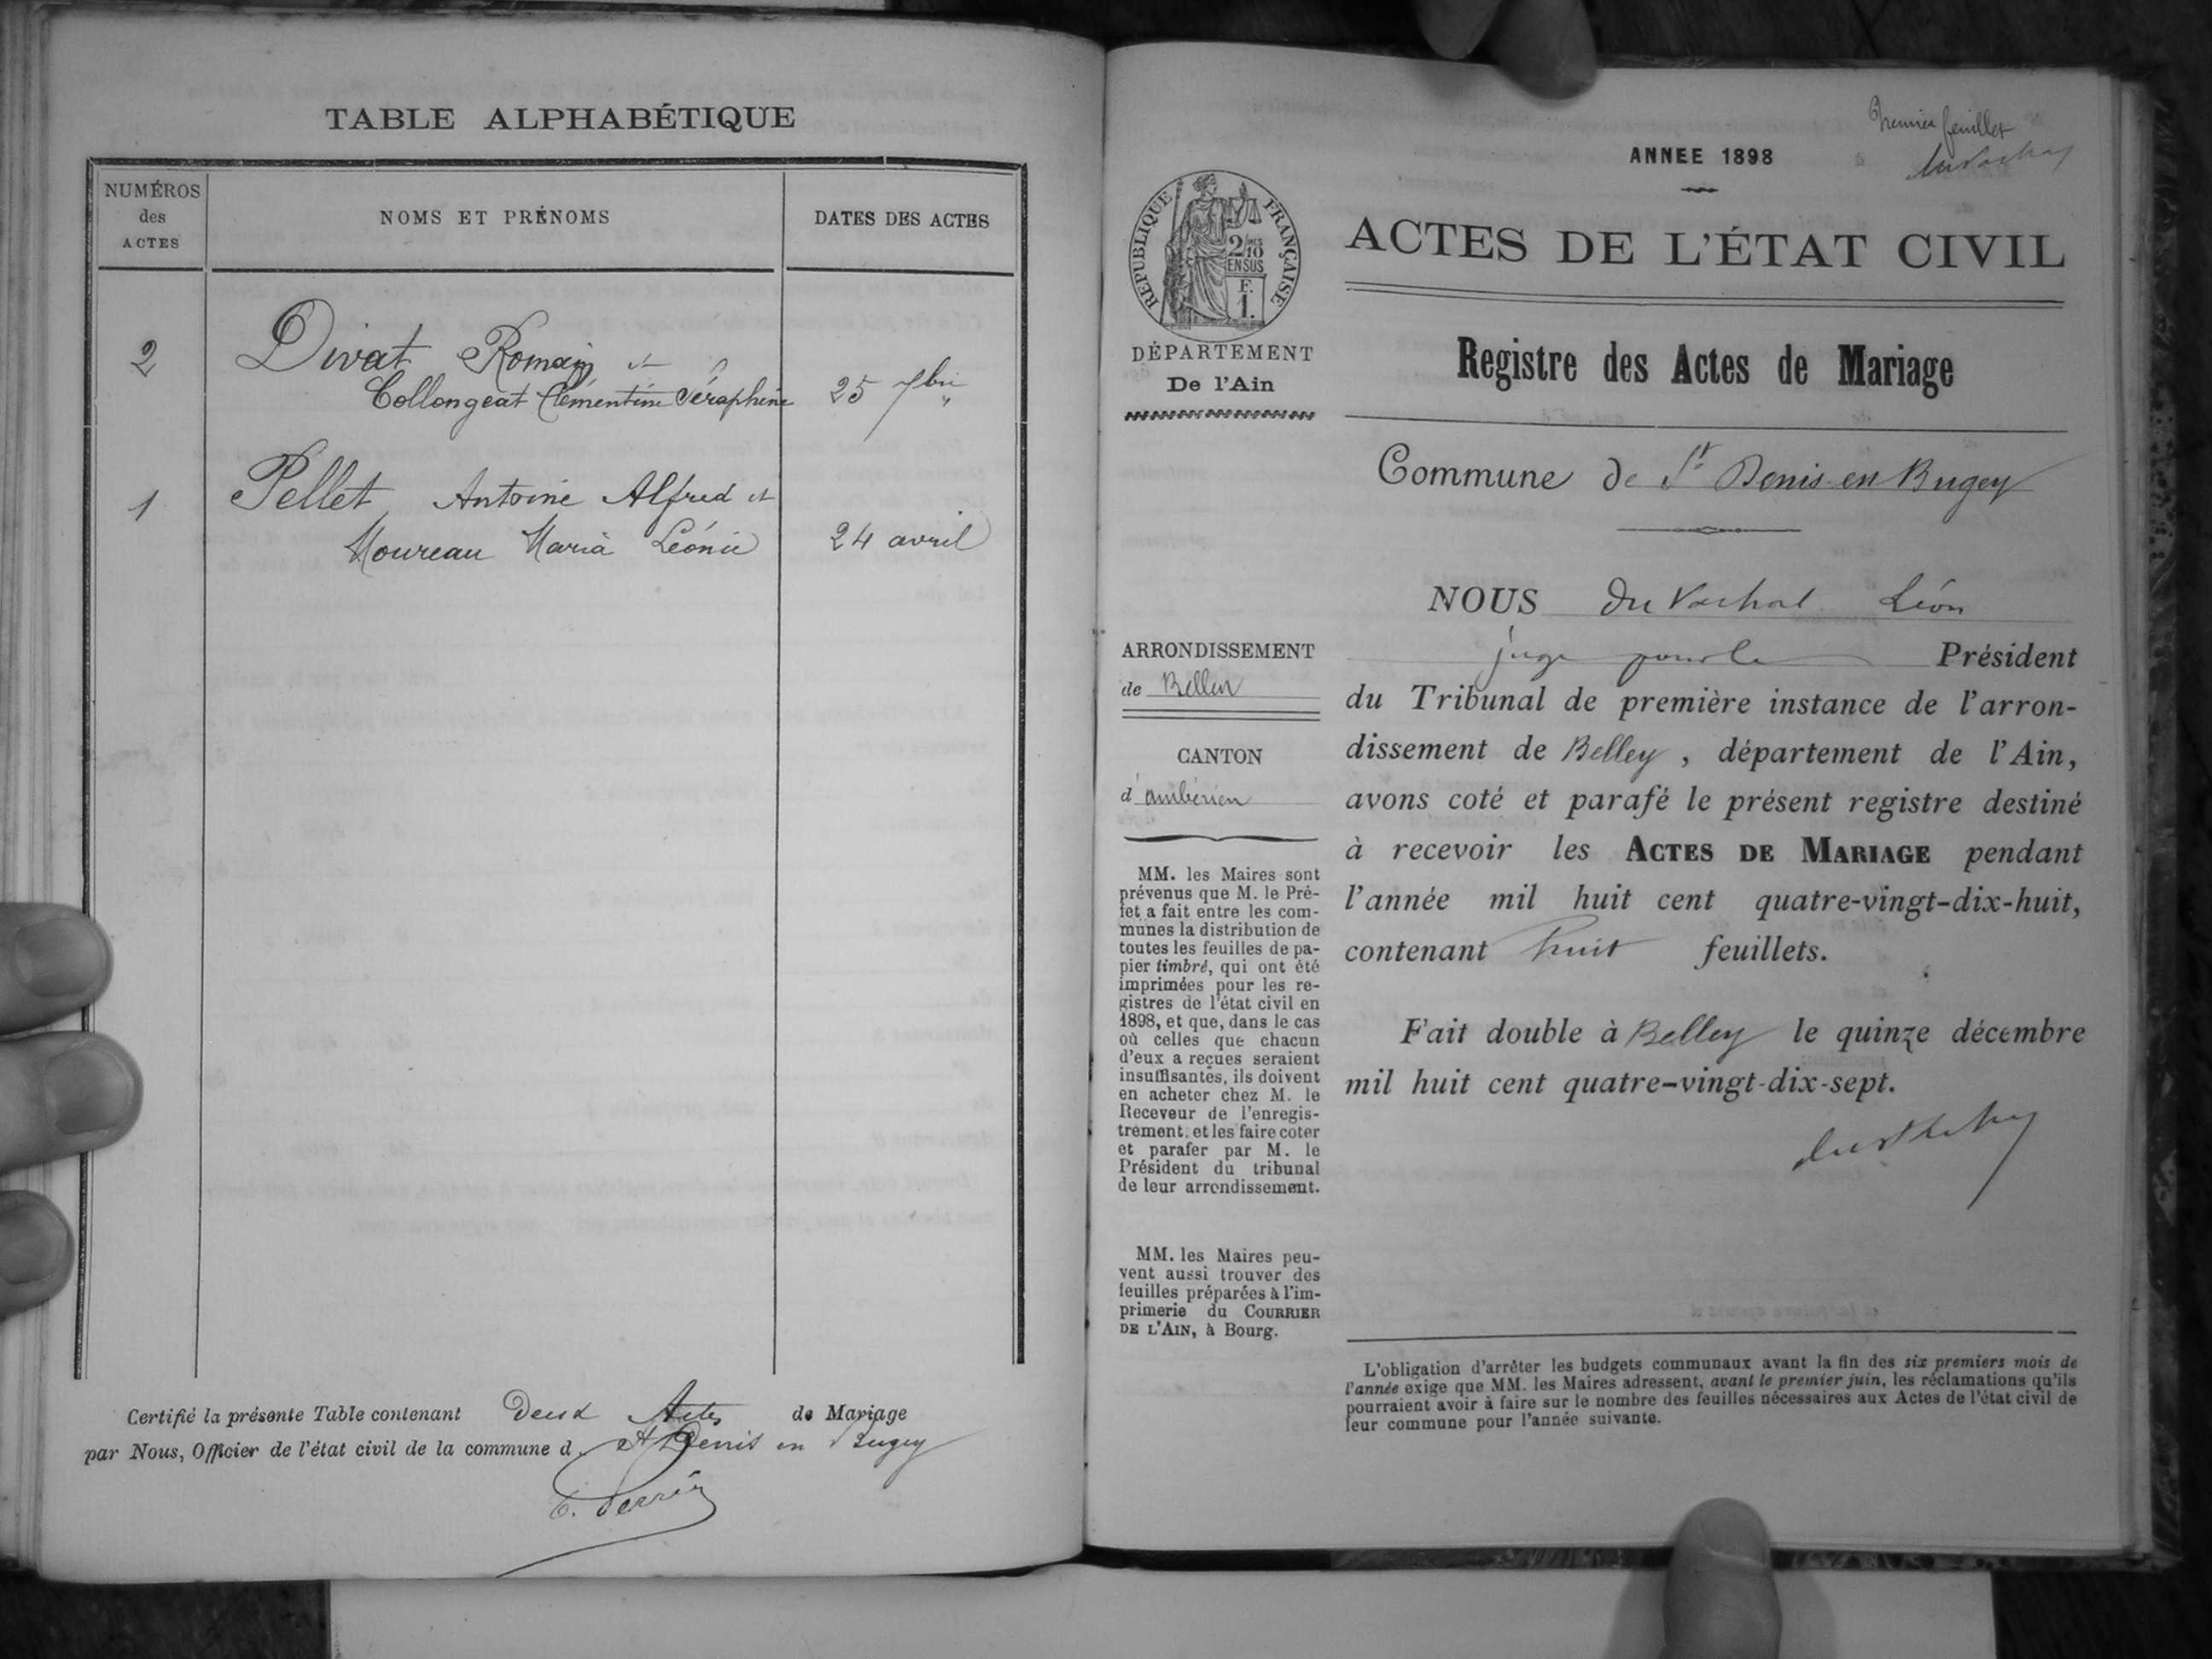 TABLE ALPHABÉTIQUE
NUMÉROS
des
ACTES
NOMS ET PRÉNOMS
DATES DES ACTES
2
Divat Romain et
Collongeat Clémentine Séraphine
25 7bre
1
Pellet Antoine Alfred et
Moureau Maria Léonie
24 avril
Certifié la présente Table contenant Deux Actes de Mariage
par Nous, Officier de l'état civil de la commune d St Denis en Bugey
Premier feuillet
ANNEE 1898
REPUBLIQUE FRANÇAISE
2/10
EN SUS
F.
1.
DÉPARTEMENT
De l'Ain
ACTES DE L'ÉTAT CIVIL
Registre des Actes de Mariage
Commune de St Denis-en-Bugey
NOUS Du Léon
juge pour le Président
du Tribunal de première instance de l'arron-
dissement de Belley, département de l'Ain,
avons coté et parafé le présent registre destiné
à recevoir les ACTES DE MARIAGE pendant
l'année mil huit cent quatre-vingt-dix-huit,
contenant huit feuillets.
Fait double à Belley le quinze décembre
mil huit cent quatre-vingt-dix-sept.
ARRONDISSEMENT
de Belley
CANTON
d'ambérieu
MM. les Maires sont
prévenus que M. le Pré-
fet a fait entre les com-
munes la distribution de
toutes les feuilles de pa-
pier timbré, qui ont été
imprimées pour les re-
gistres de l'état civil en
1898, et que, dans le cas
où celles que chacun
d'eux a reçues seraient
insuffisantes, ils doivent
en acheter chez M. le
Receveur de l'enregis-
trement, et les faire coter
et parafer par M. le
Président du tribunal
de leur arrondissement.
MM. les Maires peu-
vent aussi trouver des
feuilles préparées à l'im-
primerie du COURRIER
DE L'AIN, à Bourg.
L'obligation d'arrêter les budgets communaux avant la fin des six premiers mois de
l'année exige que MM. les Maires adressent, avant le premier juin, les réclamations qu'ils
pourraient avoir à faire sur le nombre des feuilles nécessaires aux Actes de l'état civil de
leur commune pour l'année suivante.